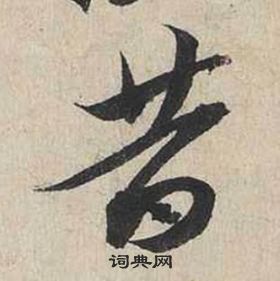 昔
词典网